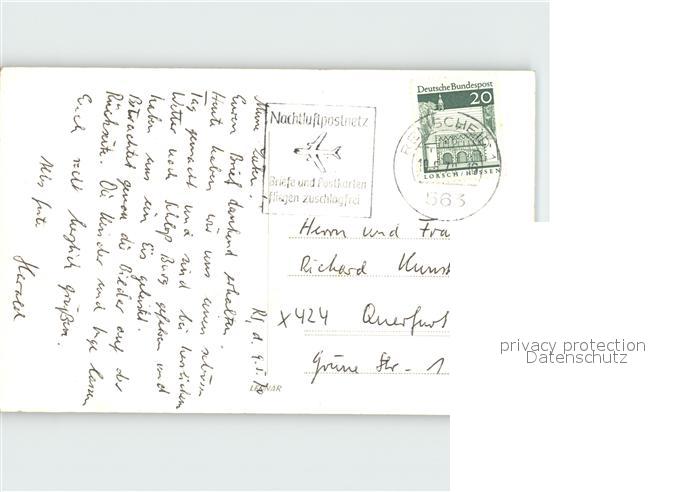 Meine Lieben!
Rs, d. 9.5.70
Euren Brief dankend erhalten.
Heute haben wir uns einen schönen
Tag gemacht und sind bei herrlichem
Wetter nach Schloß Burg gefahren und
haben uns ein Eis geleistet.
Betrachtet genau die Bilder auf der
Rückseite. Die Kinder und Inge lassen
Euch recht herzlich grüßen.
Alles Gute
Harald
Nachtluftpostnetz
Briefe und Postkarten
fliegen zuschlagfrei
Deutsche Bundespost
20
LORSCH/HESSEN
REMSCHEID 1
563
Herrn und Fra
Richard Kunst
X424 Querfurt
Grüne Str. 1
privacy protection
Datenschutz